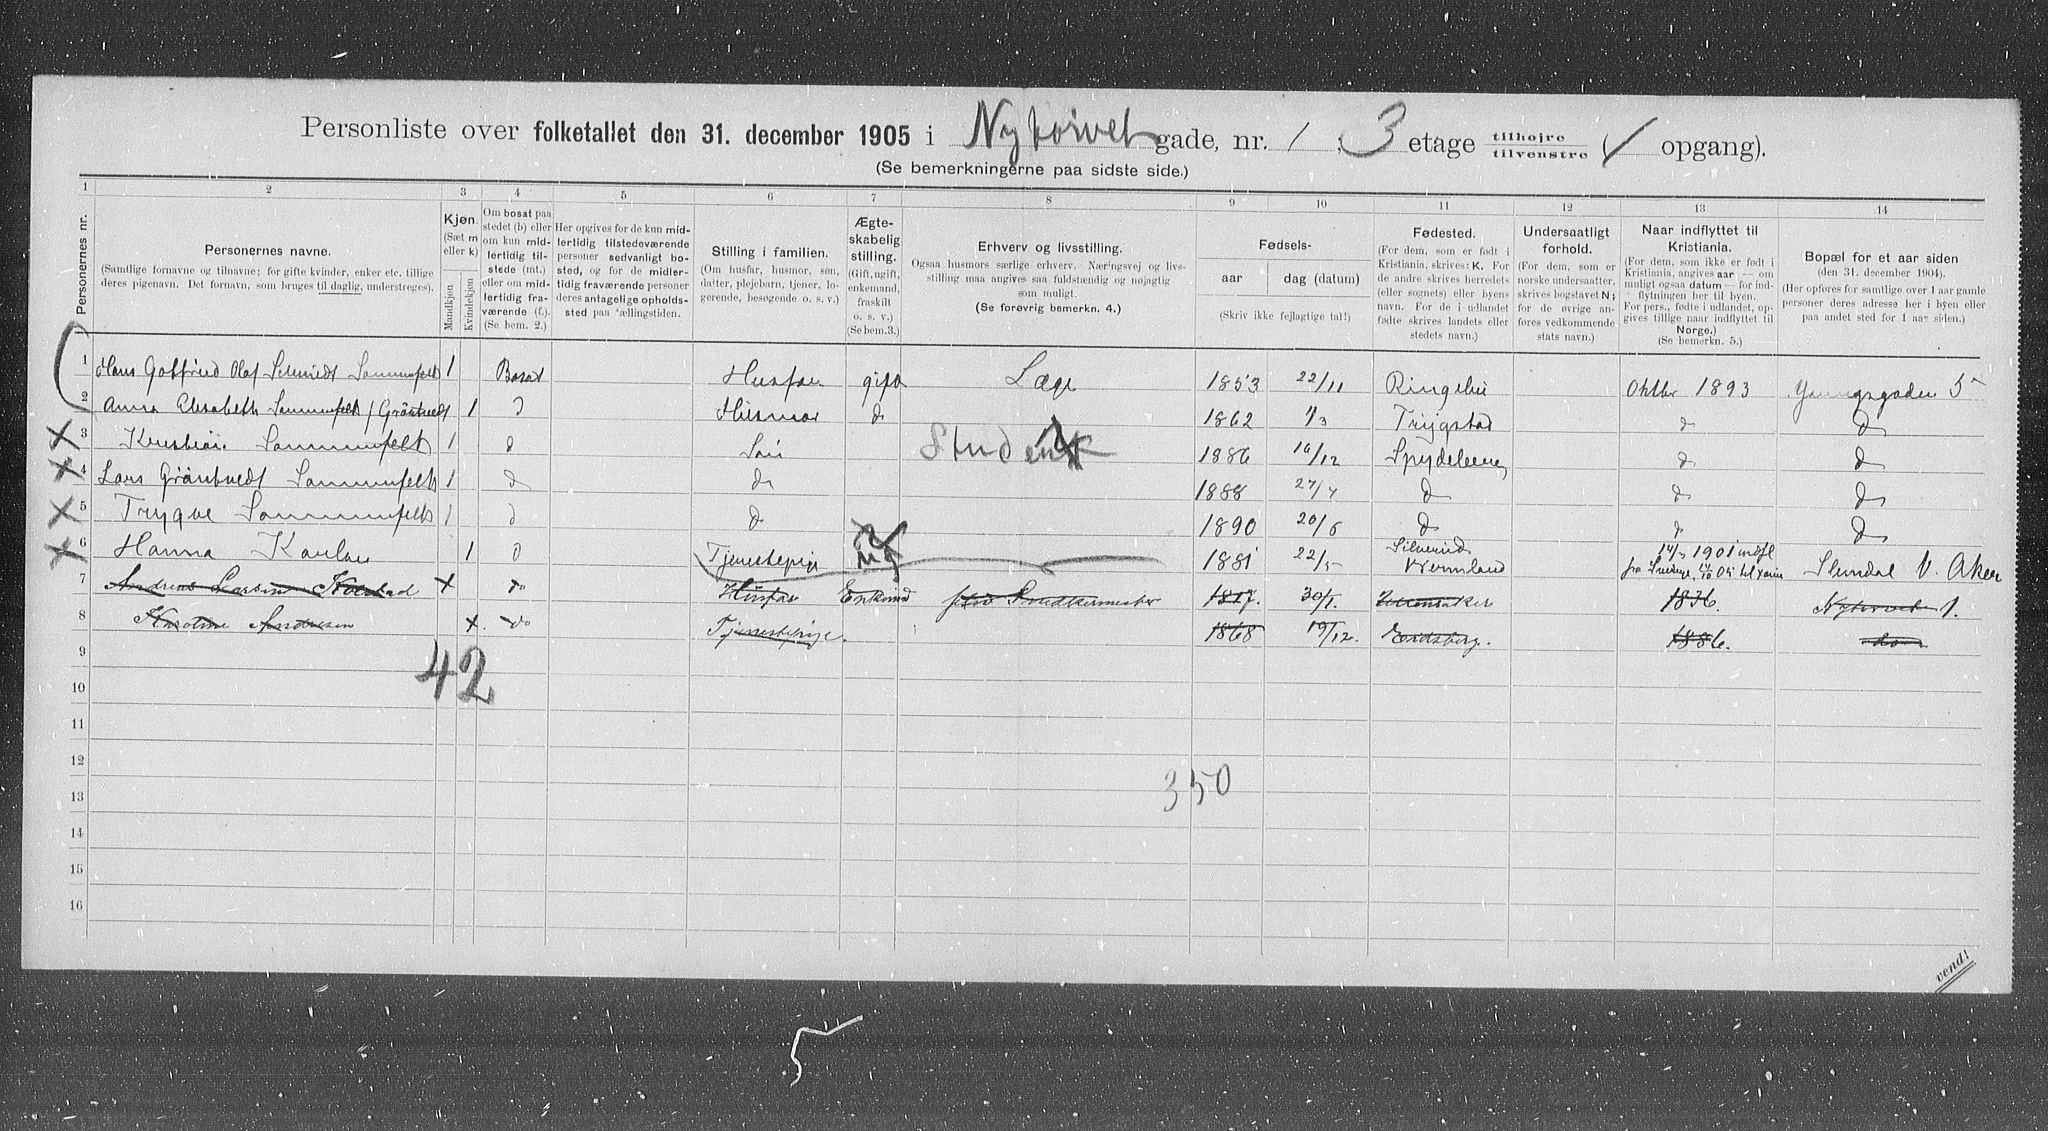 Personliste over folketallet den 31. december 1905 i Nytorvet gade, nr. 1, 3 etage tilhøjre tilvenstre opgang).
(Se bemerkningerne paa sidste side.)
1 2 3 4 5 6 7 8 9 10 11 12 13 14
Personernes nr.
Personernes navne.
(Samtlige fornavne og tilnavne; for gifte kvinder, enker etc. tillige deres pigenavn. Det fornavn, som bruges til daglig, understreges).
Kjøn.
(Sæt m eller k)
Mandkjøn
Kvindekjøn
Om bosat paa stedet (b) eller om kun midlertidig tilstede (mt.) eller om midlertidig fraværende (f.). (Se bem. 2.)
Her opgives for de kun midlertidig tilstedeværende personer sedvanligt bosted, og for de midlertidig fraværende personer deres antagelige opholdssted paa tællingstiden.
Stilling i familien.
(Om husfar, husmor, søn, datter, plejebarn, tjener, logerende, besøgende o. s. v.)
Ægteskabelig stilling.
(Gift, ugift, enkemand, fraskilt o. s. v.) (Se bem. 3.)
Erhverv og livsstilling.
Ogsaa husmors særlige erhverv. Næringsvej og livsstilling maa angives saa fuldstændig og nøjagtig som muligt.
(Se forøvrig bemerkn. 4.)
Fødsels-
aar
dag (datum)
(Skriv ikke fejlagtige tal!)
Fødested.
(For dem, som er født i Kristiania, skrives: K. For de andre skrives herredets (eller sognets) eller byens navn. For de i udlandet fødte skrives landets eller stedets navn.)
Undersaatligt forhold.
(For dem, som er norske undersaatter, skrives bogstavet N; for de øvrige anføres vedkommende stats navn.)
Naar indflyttet til Kristiania.
(For dem, som ikke er født i Kristiania, angives aar — om muligt ogsaa datum — for indflytningen her til byen. For pers., fødte i udlandet, opgives tillige naar indflyttet til Norge.)
(Se bemerkn. 5.)
Bopæl for et aar siden
(den 31. december 1904).
(Her opføres for samtlige over 1 aar gamle personer deres adresse her i byen eller paa andet sted for 1 aar siden.)
1 Hans Gottfried Olaf Schmidt Sommerfelt 1 Bosat Husfar gift Læge 1853 22/11 Ringebu Oktbr 1893 Youngsgaden 5
2 Anna Elisabeth Sommerfelt / Gröntvedt 1 d Husmor d 1862 1/3 Trygstad d d
3 Kristian Sommerfelt 1 d Sön Student 1886 16/12 Spydeberg d d
4 Lars Gröntvedt Sommerfelt 1 d d 1888 27/7 d d d
5 Trygve Sommerfelt 1 d d 1890 20/6 d d d
6 Hanna 1 d Tjenestepige ug 1881 22/5 Vermland 1901 indfl fra Sverige V. Aker
7 Andreas Larsen x do Husfar Enkemd Snedkermester 1817. 30/1. 1836. Nytorvet 1.
8 Karoline Andresen x. do Tjenestepige. 1868 19/12. Eidsberg. 1886. do
9
10
11
12
13
14
15
16
42
350
vend!